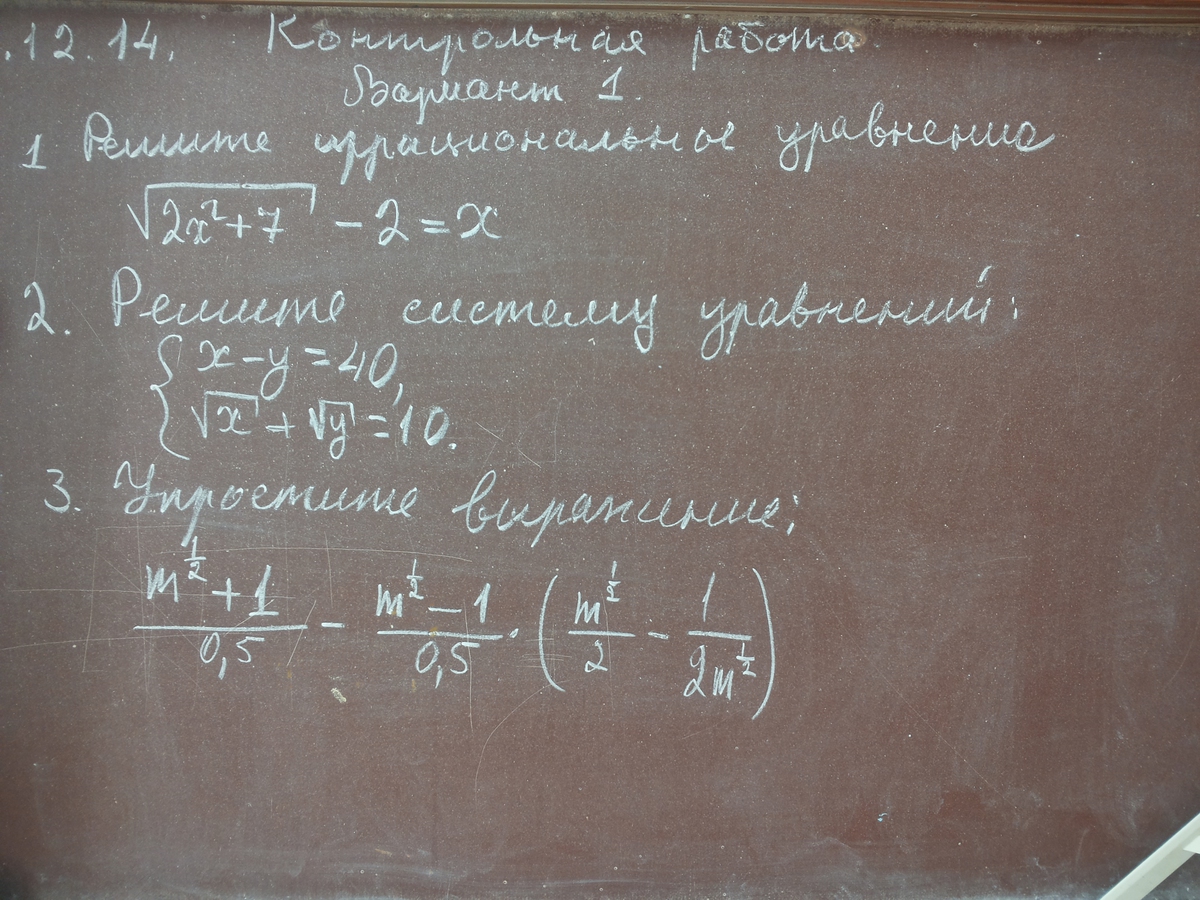 .12.14. Контрольная работа
Вариант 1.
1 Решите иррациональное уравнение
√(2x²+7) - 2 = x
2. Решите систему уравнений:
{ x - y = 40,
{ √x + √y = 10.
3. Упростите выражение:
(m^(1/2) + 1)/(0,5) - (m^(1/2) - 1)/(0,5) · (m^(1/2)/2 - 1/(2m^(1/2)))